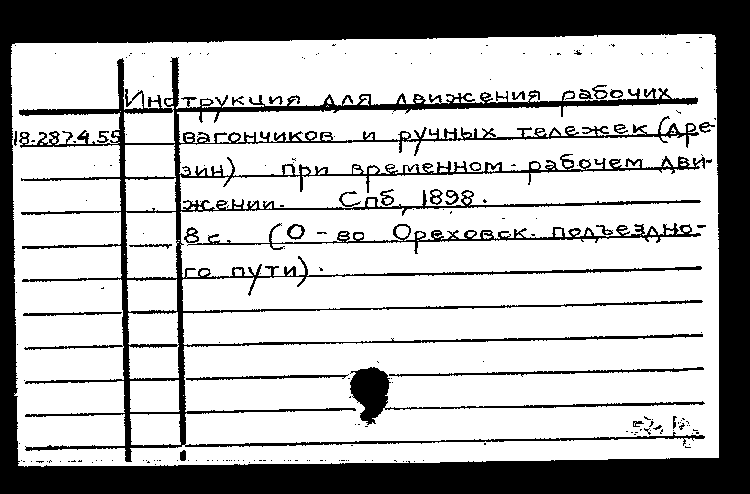 Инструкция для движения рабочих
18.287.4.55 вагончиков и ручных тележек (дре-
зин) при временном рабочем дви-
жении. Спб, 1898.
8 с. (О-во Ореховск. подъездно-
го пути).